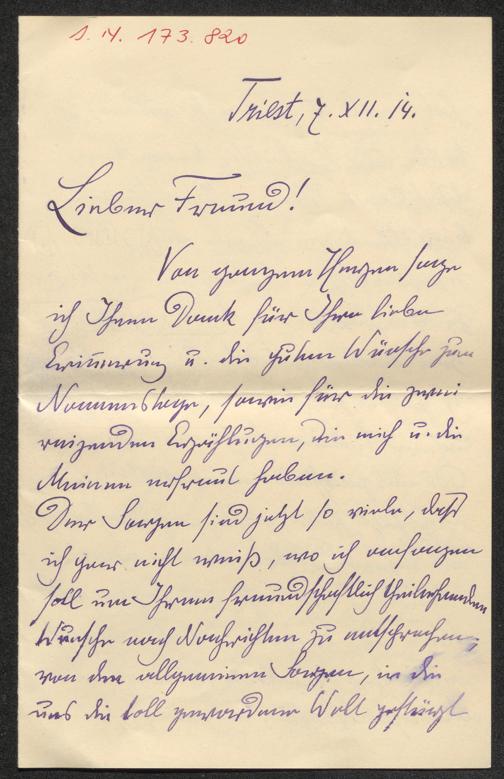 I. N. 173.820
Triest, 7. XII. 14.
Lieber Freund!
Von ganzem Herzen sage
ich Ihnen Dank für Ihre liebe
Erinnerung u. die guten Wünsche zum
Namenstage, sowie für die zwei
reizenden Erzählungen, die mich u. die
Meinen erfreut haben.
Der Sorgen sind jetzt so viele, daß
ich gar nicht weiß, wo ich anfangen
soll um Ihrem freundschaftlich theilnehmenden
Wunsche nach Nachrichten zu entsprechen;
von den allgemeinen Sorgen, in die
uns die toll gewordene Welt gestürzt